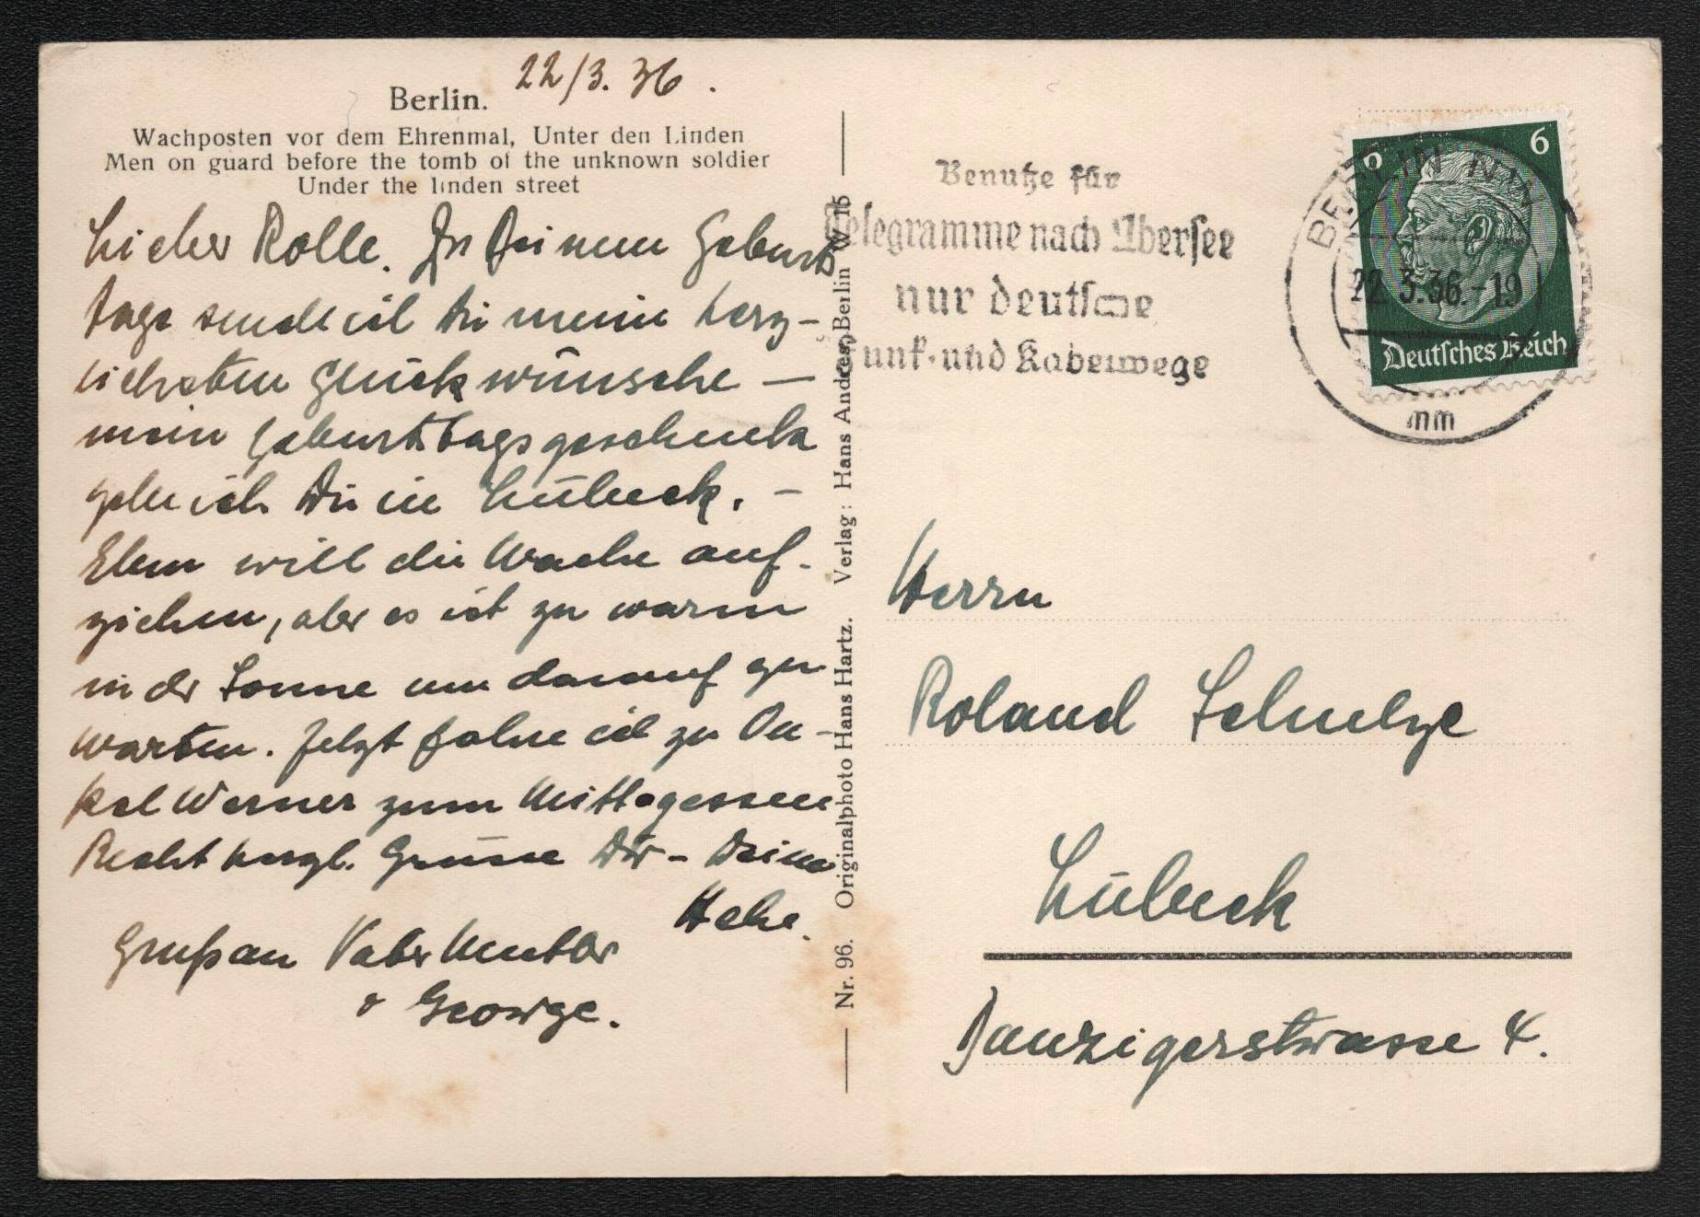 22/3. 36.
Berlin.
Wachposten vor dem Ehrenmal, Unter den Linden
Men on guard before the tomb of the unknown soldier
Under the linden street
Lieber Rolle. Zu Deinem Geburts
tage sende ich Dir meine herz-
lichsten Glückwünsche —
mein Geburtstagsgeschenk
gebe ich Dir in Lübeck. -
Eben will die Wache auf-
ziehen, aber es ist zu warm
in der Sonne um darauf zu
warten. Jetzt fahre ich zu On-
kel Werner zum Mittagessen
Recht herzl. Grüsse Dir - Deine
Gruß an Vater Mutter
George.
Nr. 96. Originalphoto Hans Hartz. Verlag: Hans Andres, Berlin W 15
Benutze für
Telegramme nach Übersee
nur deutsche
Funk- und Kabelwege
BERLIN NW
22.3.36.-19
mm
6 6
Deutsches Reich
Herrn
Roland Schulze
Lübeck
Danzigerstrasse 4.